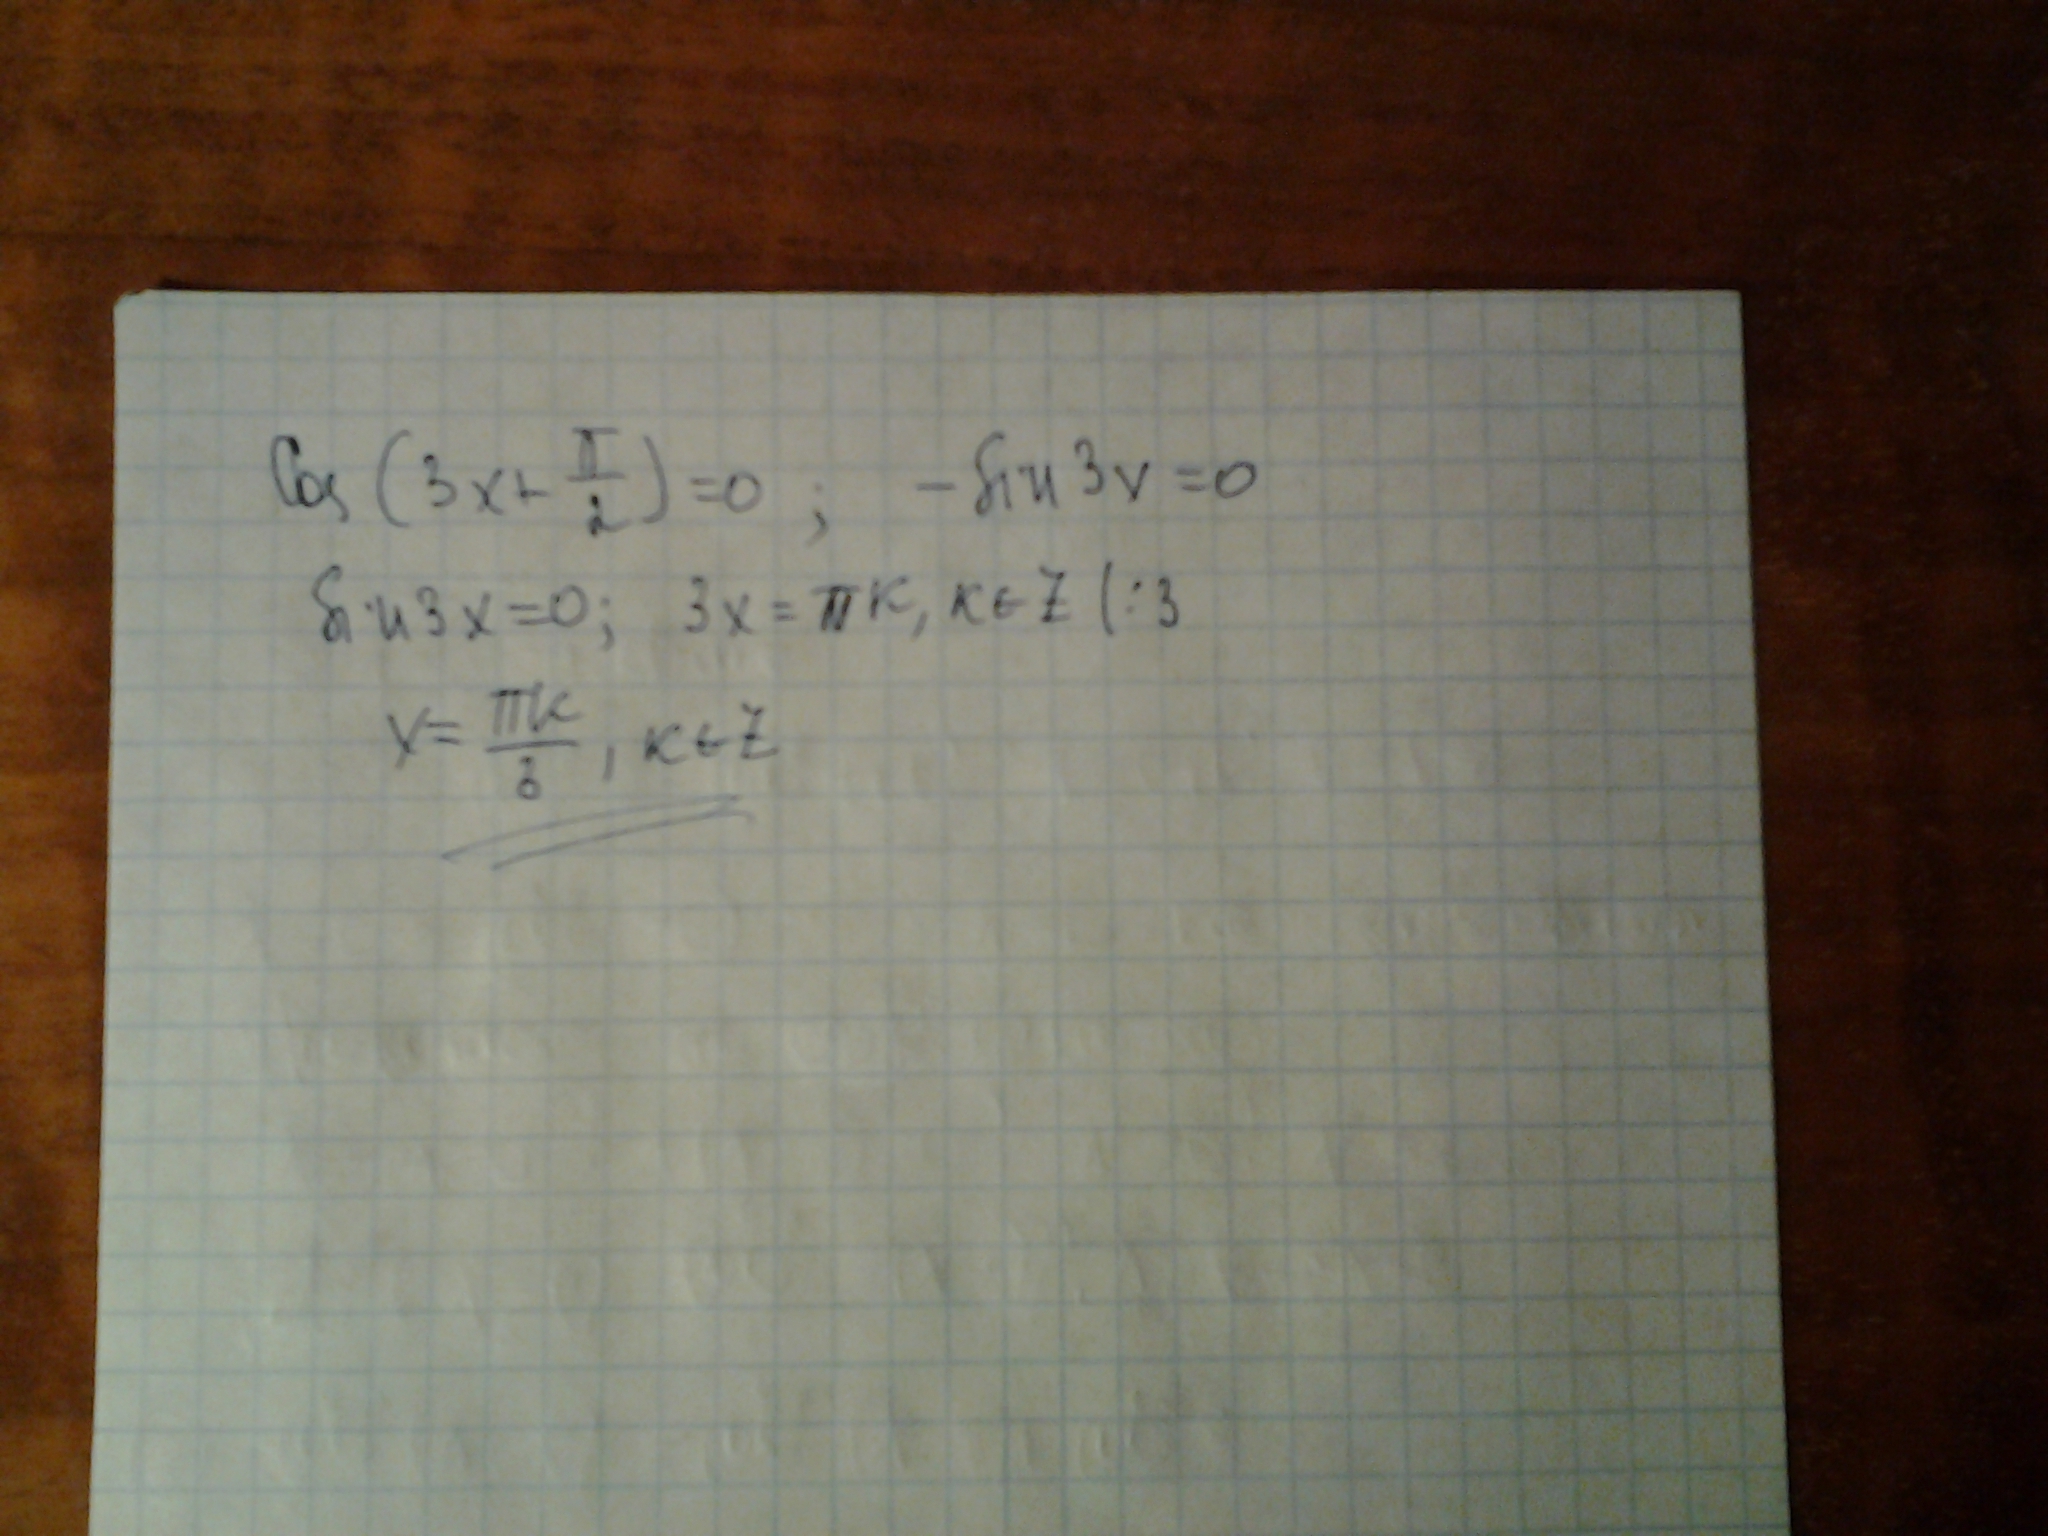 Cos (3x + π/2) = 0 ; - sin 3x = 0
sin 3x = 0; 3x = πк, к ∈ Z (:3
x = πк/3, к ∈ Z